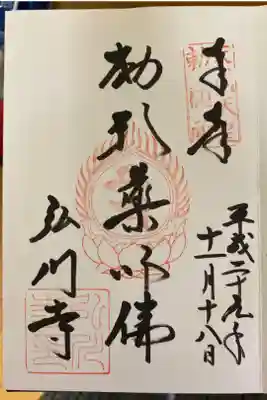 奉拝
平成二十九年
十一月十八日
薬師佛
弘川寺